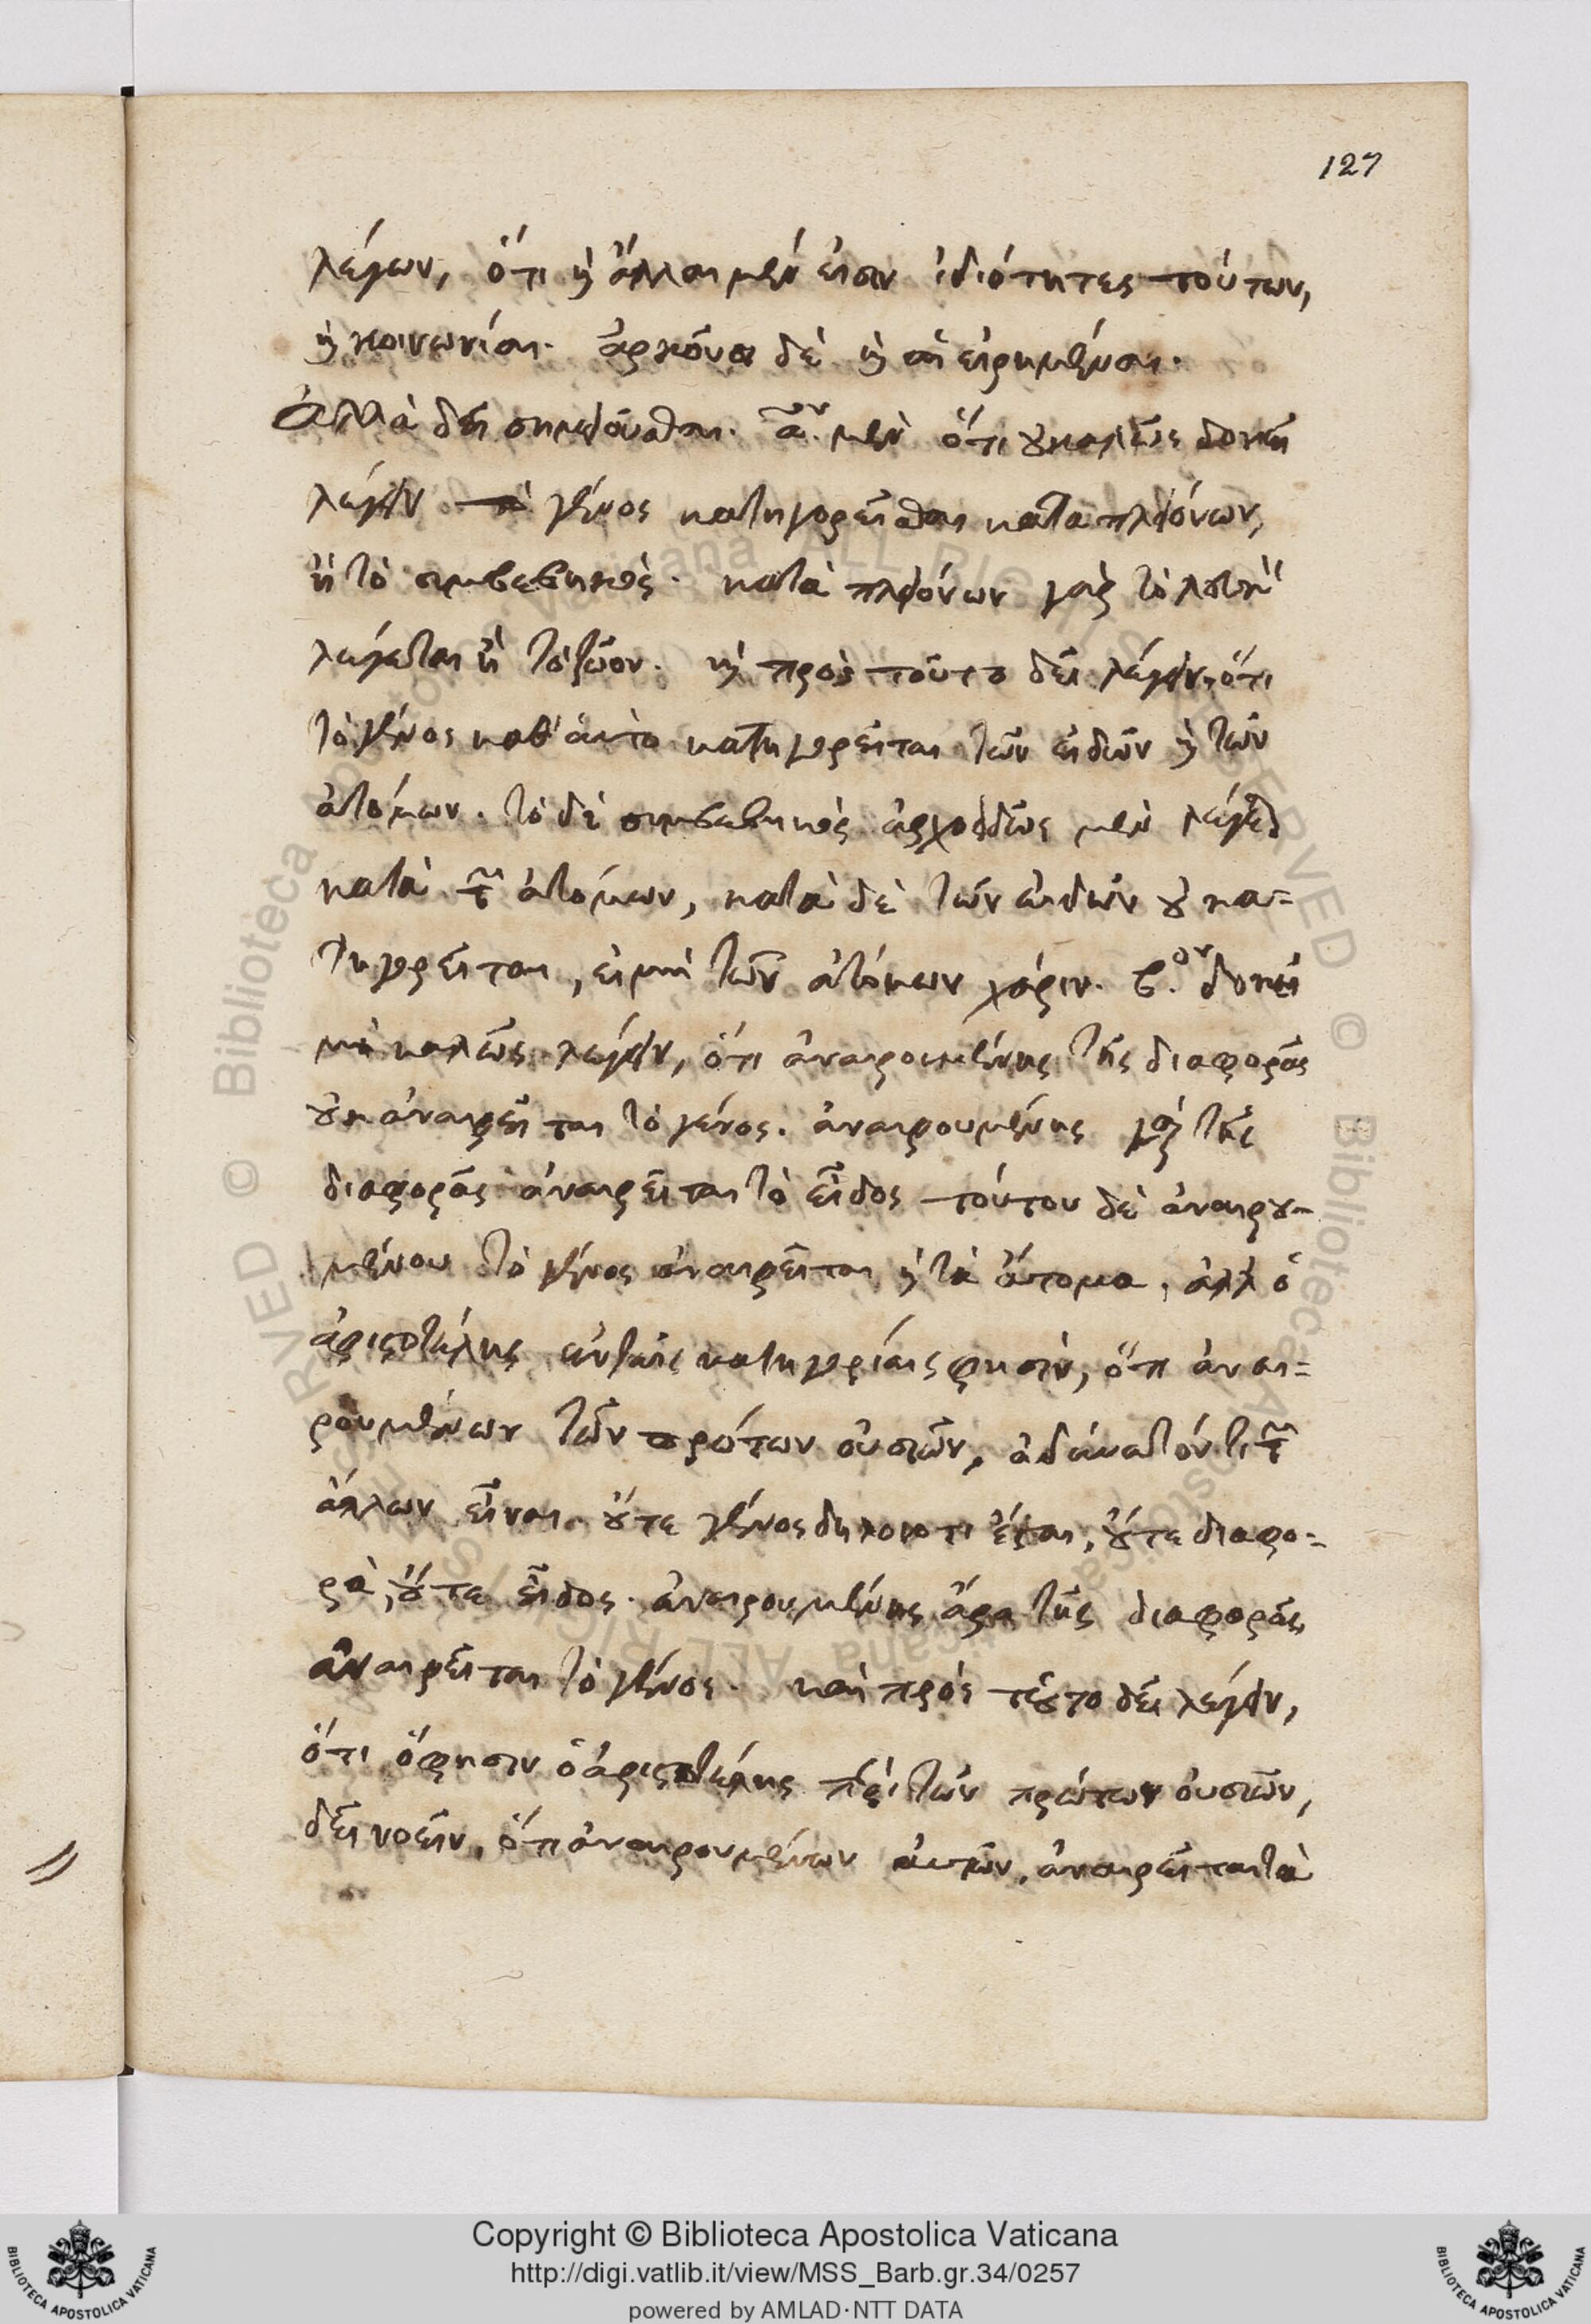 127
λέγων, ὅτι καὶ ἄλλαι μέν εἰσιν ἰδιότητες τούτων,
καὶ κοινωνίαι. ἀρκοῦσι δὲ καὶ αἱ εἰρημέναι.
Ἀλλὰ δεῖ σημειοῦσθαι. αον. μὲν ὅτι οὐ καλῶς δοκεῖ
λέγειν τὸ γένος κατηγορεῖσθαι κατὰ πλειόνων,
ἢ τὸ συμβεβηκὸς. κατὰ πλειόνων γὰρ τὸ λευκὸν
λέγεται ἢ τὸ ζῶον. καὶ πρὸς τοῦτο δεῖ λέγειν, ὅτι
τὸ γένος καθ' αὑτὸ κατηγορεῖται τῶν εἰδῶν καὶ τῶν
ἀτόμων. τὸ δὲ συμβεβηκὸς ἀρχοειδῶς μὲν λέγεται
κατὰ τῶν ἀτόμων, κατὰ δὲ τῶν εἰδῶν οὐ κα-
τηγορεῖται, εἰ μὴ τῶν ἀτόμων χάριν. β.ον δοκεῖ
μὴ καλῶς λέγειν, ὅτι ἀναιρουμένης τῆς διαφορᾶς
οὐκ ἀναιρεῖται τὸ γένος. ἀναιρουμένης γὰρ τῆς
διαφορᾶς ἀναιρεῖται τὸ εἶδος τούτου δὲ ἀναιρου-
μένου τὸ γένος ἀναιρεῖται καὶ τὰ ἄτομα, ἀλλ' ὁ
ἀριστοτέλης ἐν ταῖς κατηγορίαις φησὶν, ὅτι ἀναι-
ρουμένων τῶν πρώτων οὐσιῶν, ἀδύνατόν τι τῶν
ἄλλων εἶναι. οὔτε γένος δηλονότι ἔσται, οὔτε διαφο-
ρὰ, οὔτε εἶδος. ἀναιρουμένης ἄρα τῆς διαφορᾶς,
ἀναιρεῖται τὸ γένος. καὶ πρὸς τοῦτο δεῖ λέγειν,
ὅτι ὅ φησιν ὁ ἀριστοτέλης περὶ τῶν πρώτων οὐσιῶν,
δεῖ νοεῖν, ὅτι ἀναιρουμένων αὐτῶν, ἀναιρεῖται τὰ
Copyright © Biblioteca Apostolica Vaticana
http://digi.vatlib.it/view/MSS_Barb.gr.34/0257
powered by AMLAD·NTT DATA